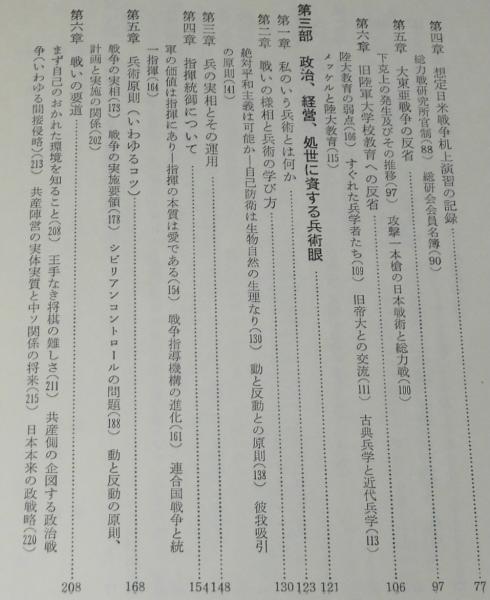 第四章 想定日米戦争机上演習の記録……77
総力戦研究所官制(88) 総研会会員名簿(90)
第五章 大東亜戦争の反省……97
下克上の発生及びその推移(97) 攻撃一本槍の日本戦術と総力戦(100)
第六章 旧陸軍大学校教育への反省……106
陸大教育の弱点(106) すぐれた兵学者たち(109) 旧帝大との交流(111) 古典兵学と近代兵学(113)
メッケルと陸大教育(115)
第三部 政治、経営、処世に資する兵術眼……121
第一章 私のいう兵術とは何か……123
第二章 戦いの様相と兵術の学び方……130
絶対平和主義は可能か—自己防衛は生物自然の生理なり(130) 動と反動との原則(138) 彼我吸引
の原則(141)
第三章 兵の実相とその運用……148
第四章 指揮統御について……154
軍の価値は指揮にあり—指揮の本質は愛である(154) 戦争指導機構の進化(161) 連合国戦争と統
一指揮(164)
第五章 兵術原則(いわゆるコツ)……168
戦争の実相(173) 戦争の実施要領(178) シビリアンコントロールの問題(188) 動と反動の原則、
計画と実施の関係(202)
第六章 戦いの要道……208
まず自己のおかれた環境を知ること(208) 王手なき将棋の難しさ(211) 共産側の企図する政治戦
争(いわゆる間接侵略)(213) 共産陣営の実体実質と中ソ関係の将来(215) 日本本来の政戦略(220)